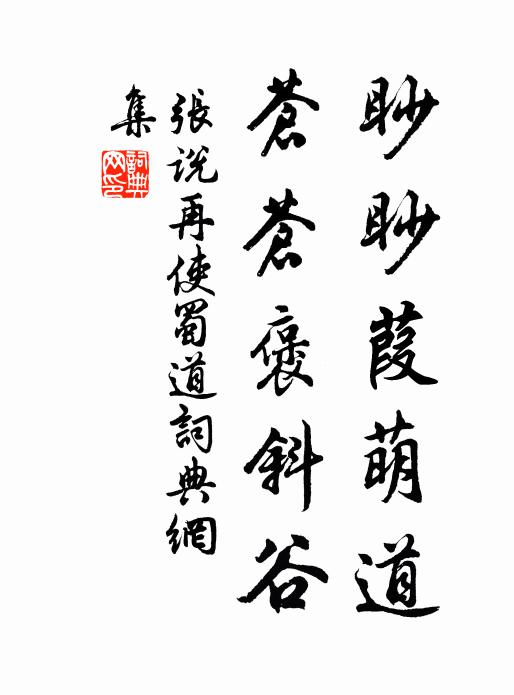 眇眇葭萌道
蒼蒼褒斜谷
張說再使蜀道詞典網
集
詞典網印